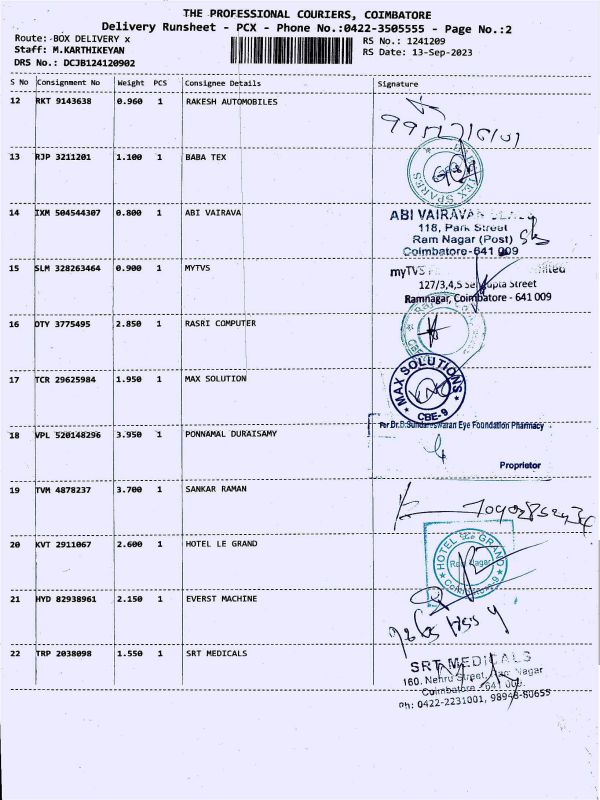 THE PROFESSIONAL COURIERS, COIMBATORE
Delivery Runsheet - PCX - Phone No.:0422-3505555 - Page No.:2
Route: BOX DELIVERY x
RS No.: 1241209
Staff: M.KARTHIKEYAN
RS Date: 13-Sep-2023
DRS No.: DCJB124120902
S No Consignment No Weight PCS Consignee Details Signature
12 RKT 9143638 0.960 1 RAKESH AUTOMOBILES
13 RJP 3211201 1.100 1 BABA TEX
TEX SPARES
14 IXM 504544307 0.800 1 ABI VAIRAVA
ABI VAIRAVA
118, Park Street
Ram Nagar (Post)
Coimbatore-641 009
15 SLM 328263464 0.900 1 MYTVS
myTVS
127/3,4,5 Sengupta Street
Ramnagar, Coimbatore - 641 009
16 OTY 3775495 2.850 1 RASRI COMPUTER
17 TCR 29625984 1.950 1 MAX SOLUTION
MAX SOLUTIONS
CBE-9
18 VPL 520148296 3.950 1 PONNAMAL DURAISAMY
For Dr.D.Sundareswaran Eye Foundation Pharmacy
Proprietor
19 TVM 4878237 3.700 1 SANKAR RAMAN
20 KVT 2911067 2.600 1 HOTEL LE GRAND
HOTEL GRAND
Coimbatore-9
21 HYD 82938961 2.150 1 EVERST MACHINE
22 TRP 2038098 1.550 1 SRT MEDICALS
SRT MEDICALS
160, Nehru Street, Ram Nagar
Coimbatore - 641 009.
Ph: 0422-2231001, 98948-80655